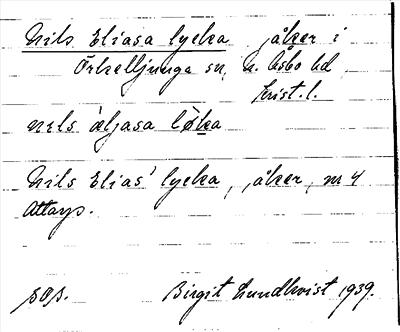 Nils Eliasa lycka, åker i
Örkelljunga sn, n. Åsbo hd
Krist. l.
nɪls æljasa løka
Nils Elias' lycka, åker, nr 4
Attarp.
sos. Birgit Lundkvist 1939.